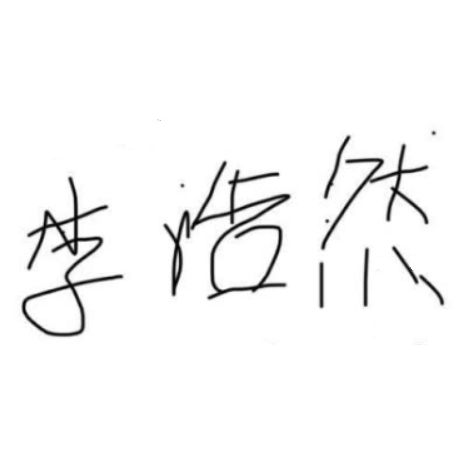 李浩然